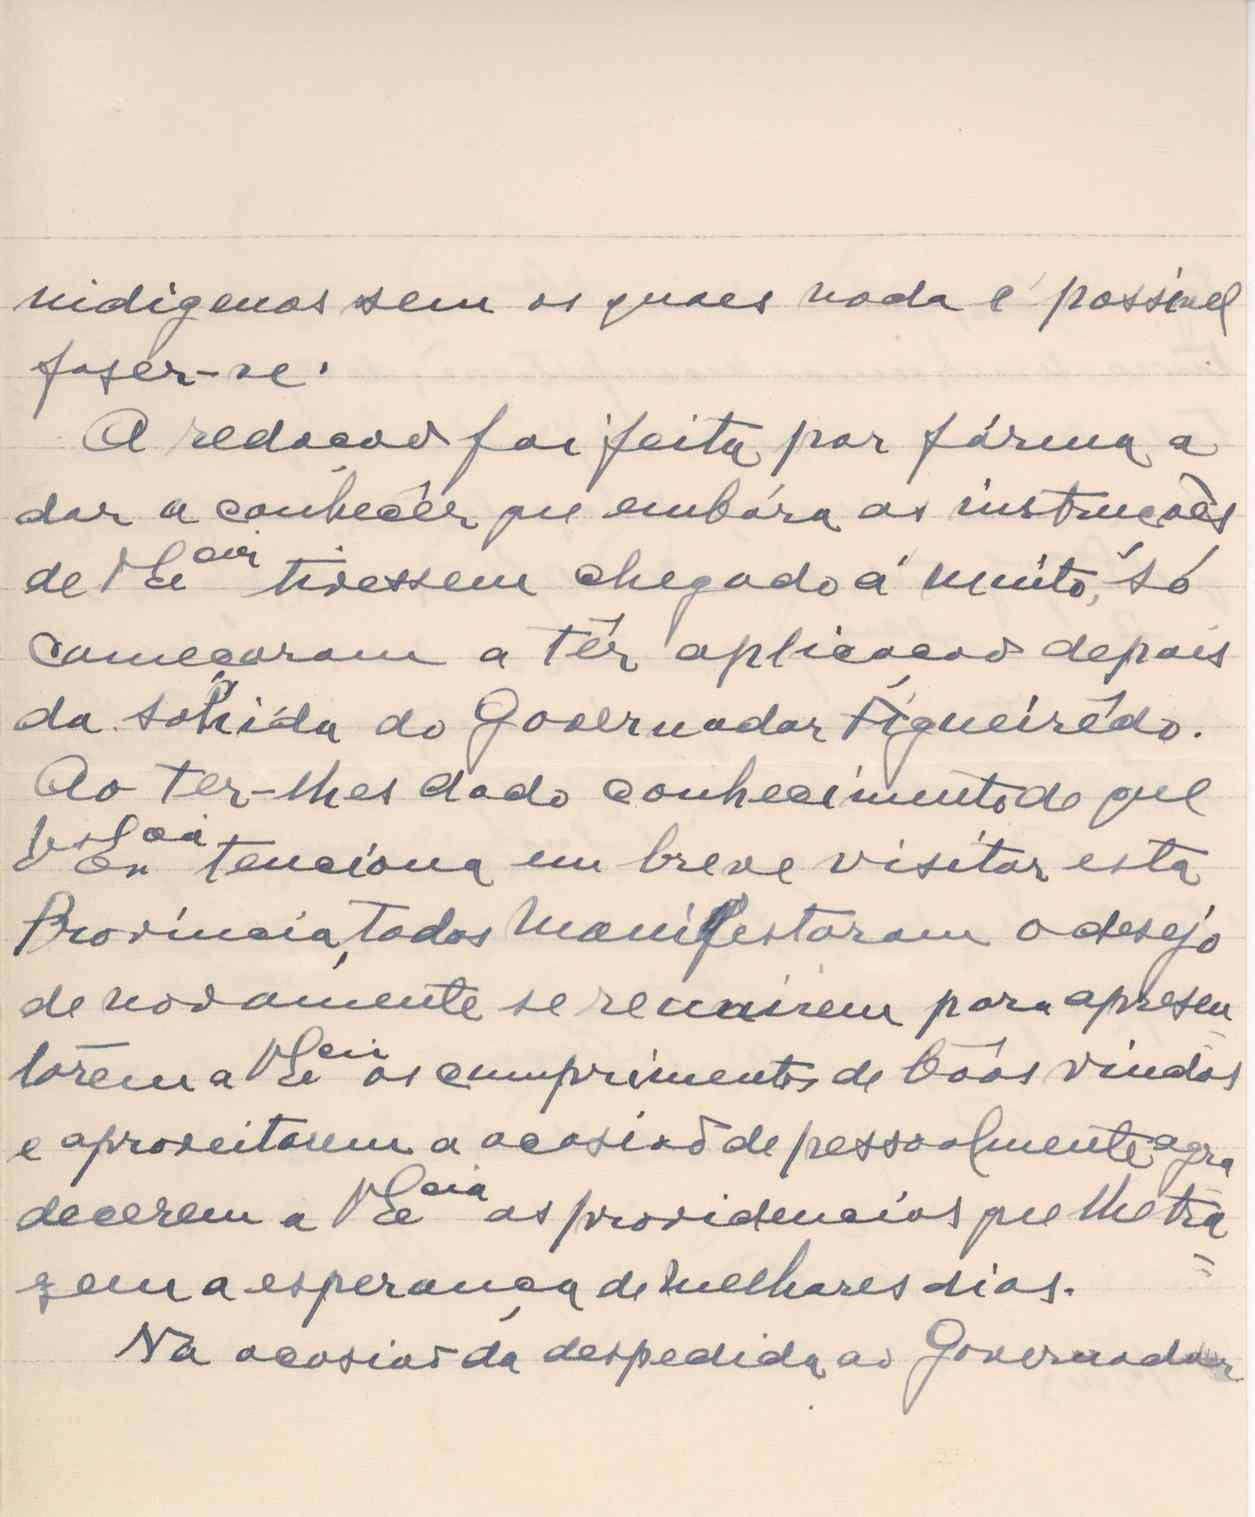 indigenas sem os quaes nada é possivel
faser-se.
A redacção foi feita por fórma a
dar a conhecêr que embóra as instrucções
de V Ex.cia tivessem chegado á muito, só
começaram a têr aplicação depois
da sahida do Governador Figueirêdo.
Ao ter-lhes dado conhecimento de que
V Ex.cia tenciona em breve visitar esta
Provincia, todos manifestaram o desejo
de novamente se reunirem para apresen
tarem a V Ex.cia os cumprimentos de bôas vindas
e aproveitarem a ocasião de pessoalmente agra
decerem a V Ex.cia as providencias que lhe tra
zem a esperança de melhores dias.
Na ocasião da despedida ao Governador